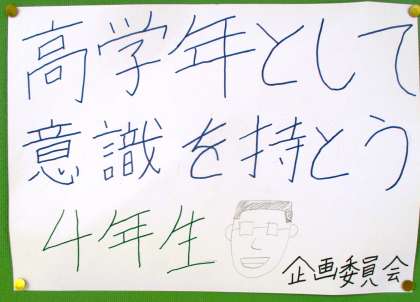 高学年として
意識を持とう
4年生
企画委員会